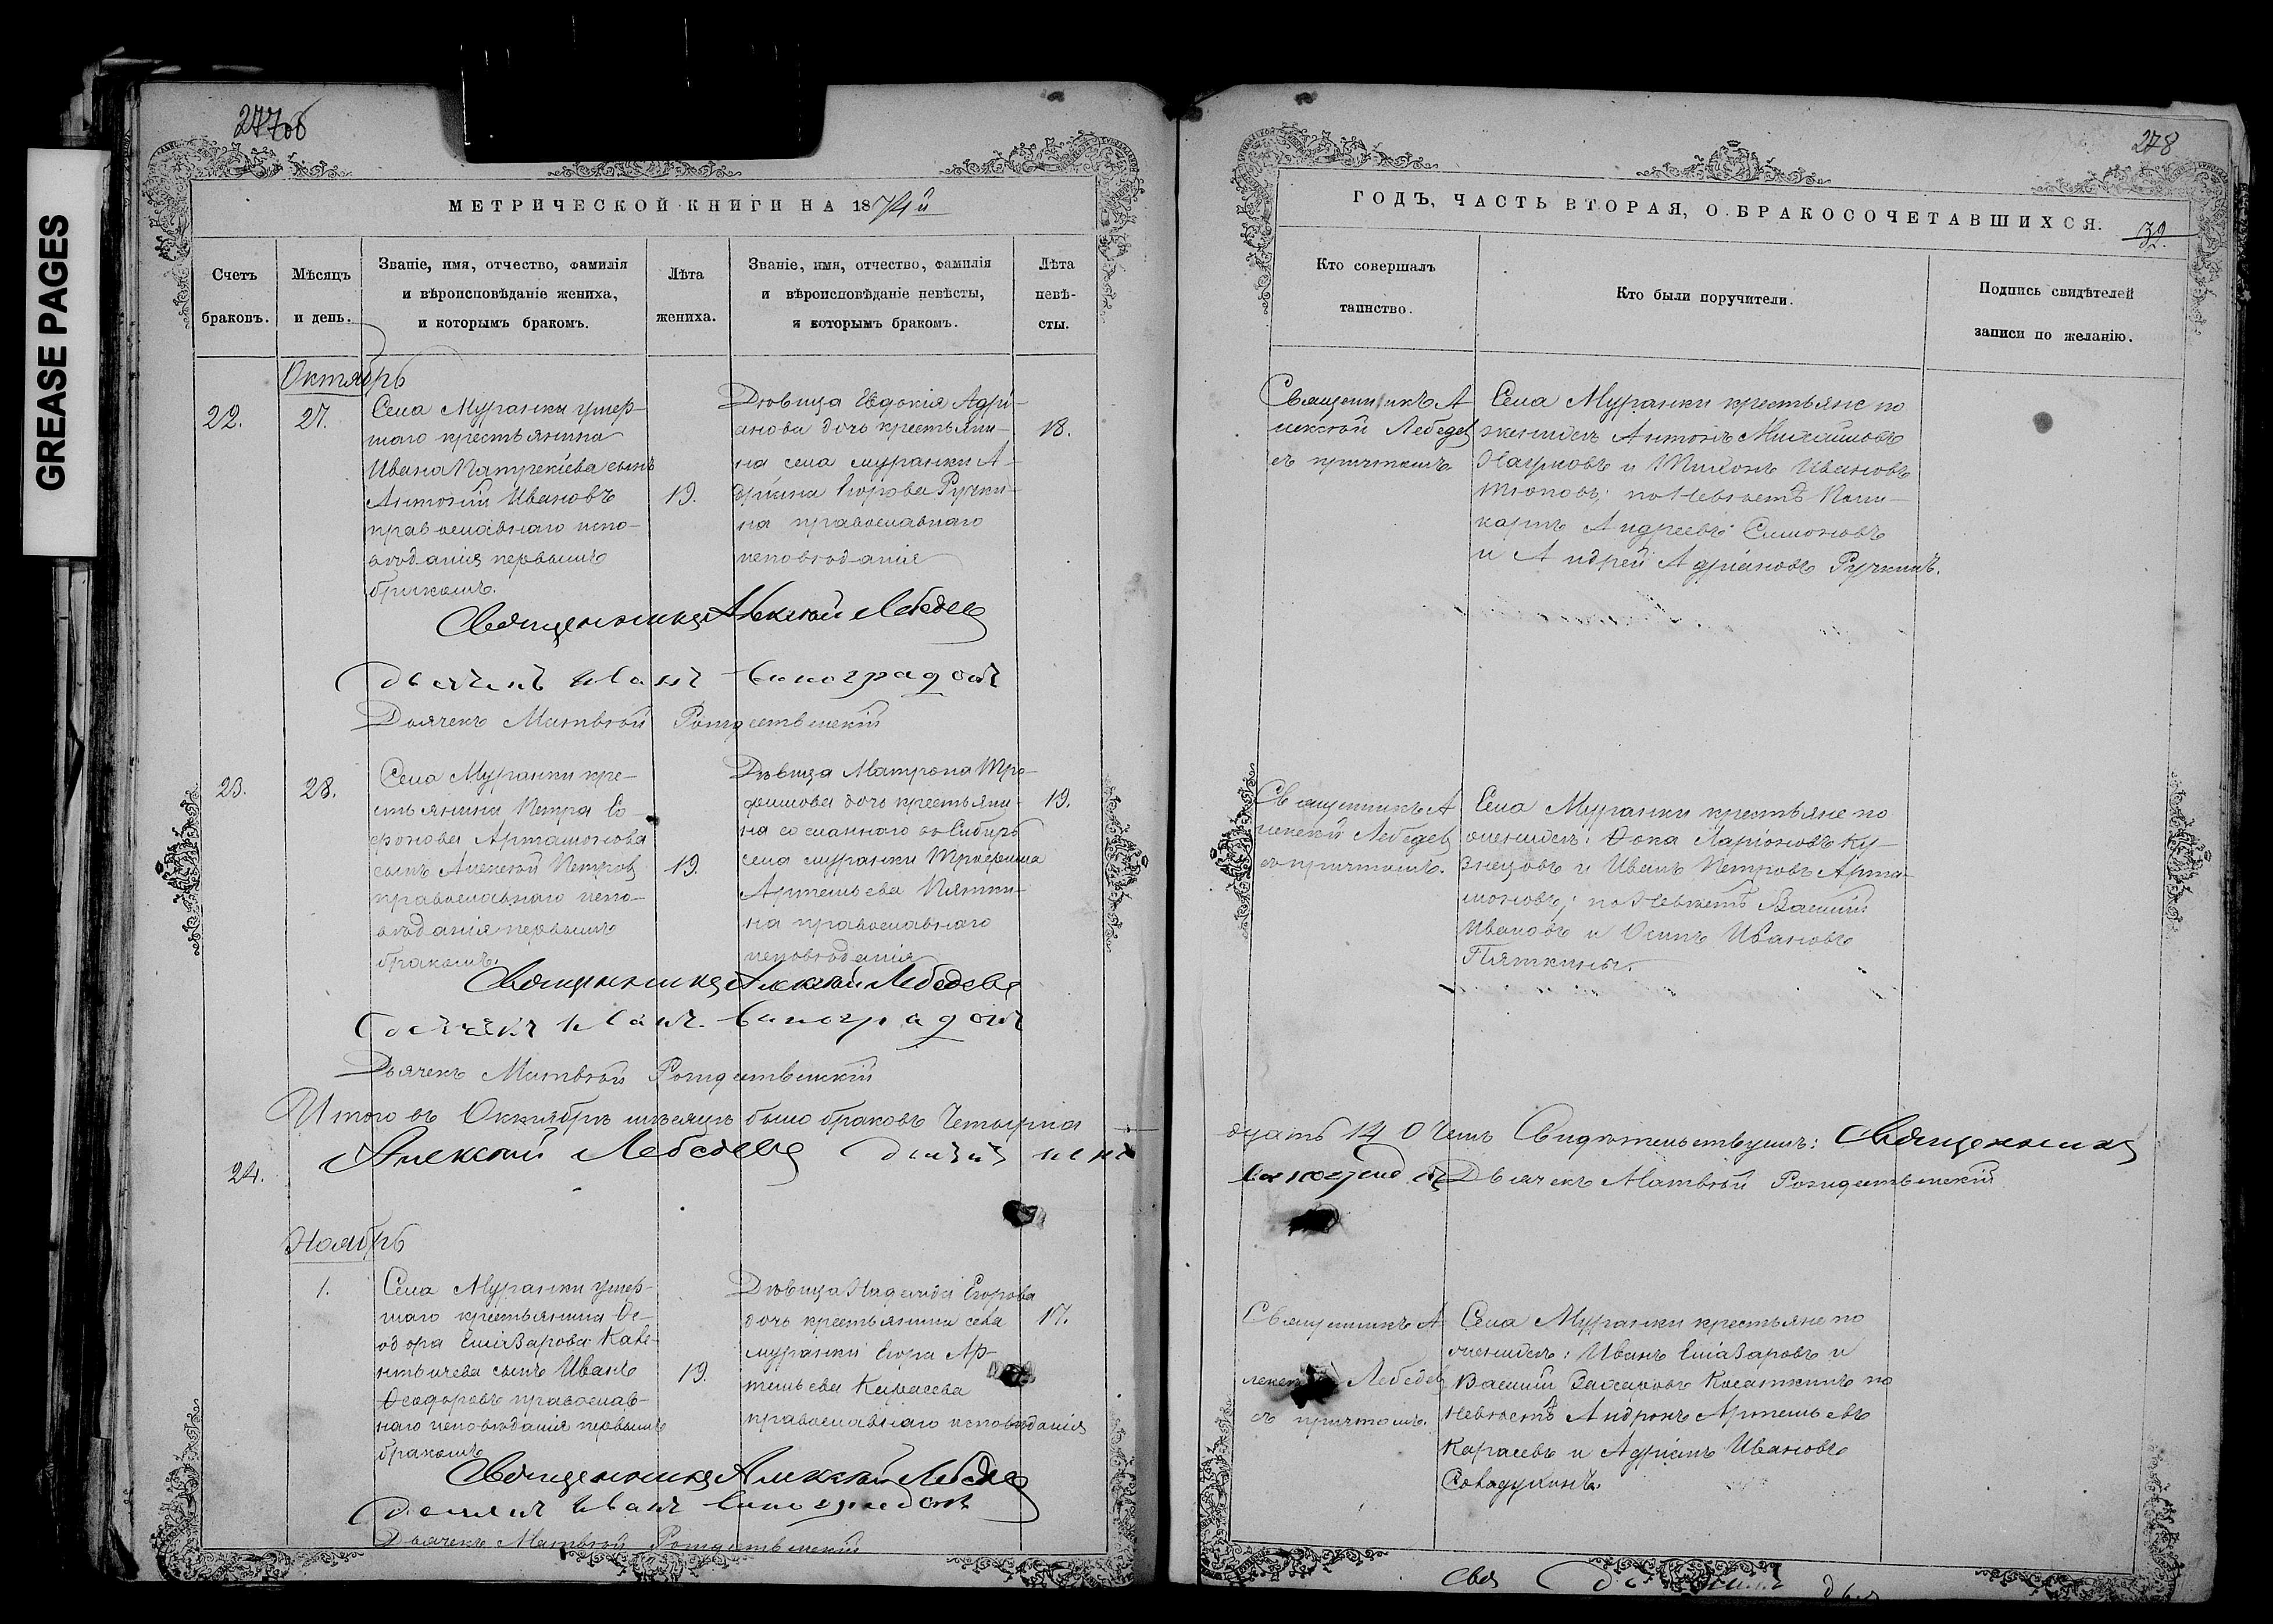 GREASE PAGES
277об
МЕТРИЧЕСКОЙ КНИГИ НА 1874й
Счетъ браковъ.
Мѣсяцъ и день.
Званіе, имя, отчество, фамилія и вѣроисповѣданіе жениха, и которымъ бракомъ.
Лѣта жениха.
Званіе, имя, отчество, фамилія и вѣроисповѣданіе невѣсты, и которымъ бракомъ.
Лѣта невѣ-
сты.
Октябрь
22.
27.
Села Муранки умер-
шаго крестьянина
Ивана Патрекіева сынъ
Антоній Ивановъ
православнаго испо-
вѣданія первымъ
бракомъ.
19.
Дѣвица Евдокія Адрі-
анова дочь крестьяни-
на села муранки А-
дріана Егорова Ручки-
на православнаго
исповѣданія
18.
Священникъ Алексѣй Лебедев
Иванъ Виноградовъ
Дьячекъ Матвѣй Рождественскій
23.
28.
Села Муранки кре-
стьянина Петра Со-
фонова Артамонова
сынъ Алексѣй Петров
православнаго испо-
вѣданія первымъ
бракомъ.
19.
Дѣвица Матрона Тро-
фимова дочь крестьяни-
на сосланного въ Сибирь
села муранки Трофима
Артемьева Пятки-
на православнаго
исповѣданія
19.
Священникъ Алексѣй Лебедевъ
Иванъ Виноградовъ
Дьячекъ Матвѣй Рождественскій
Итого въ Октябрѣ мѣсяцѣ было браковъ Четырна
Алексѣй Лебедевъ
24.
Ноябрь
1.
Села Муранки умер-
шаго крестьянина Ѳе-
одора Елизарова
сынъ Иванъ
Ѳеодоровъ православ-
наго исповѣданія первымъ
бракомъ
19.
Дѣвица Надежда Егорова
дочь крестьянина села
муранки Егора Ар-
темьева Карасева
православнаго исповѣданія
17.
Священникъ Алексѣй Лебедев
Иванъ Виноградовъ
Дьячекъ Матвѣй Рождественскій
278
ГОДЪ, ЧАСТЬ ВТОРАЯ, О БРАКОСОЧЕТАВШИХСЯ.
32.
Кто совершалъ таинство.
Кто были поручители.
Подпись свидѣтелей записи по желанію.
Священникъ А
лексѣй Лебедев
съ причтомъ
Села Муранки крестьяне по
женихѣ Антонъ Михайловъ
и Тихонъ Ивановъ
по Невѣстѣ Поли-
карпъ Андреевъ Симоновъ
и Андрей Адріановъ Ручкинъ.
Священникъ А
лексѣй Лебедев
съ причтомъ.
Села Муранки крестьяне по
женихѣ: Ѳока Ларіоновъ Ку-
знецовъ и Иванъ Петровъ Арта-
моновъ; по Невѣстѣ Василій
Ивановъ и Осипъ Ивановъ
Пяткины.
дцать 14 О Чемъ Свидѣтельствуемъ: Священникъ
Виноградовъ Дьячекъ Матвѣй Рождественскій
Священникъ А
Лебедев
съ причтомъ.
Села Муранки крестьяне по
женихѣ: Иванъ Елизаровъ и
Василій Захаровъ Касаткинъ по
Невѣстѣ Андронъ Артемьевъ
Карасевъ и Адріанъ Ивановъ